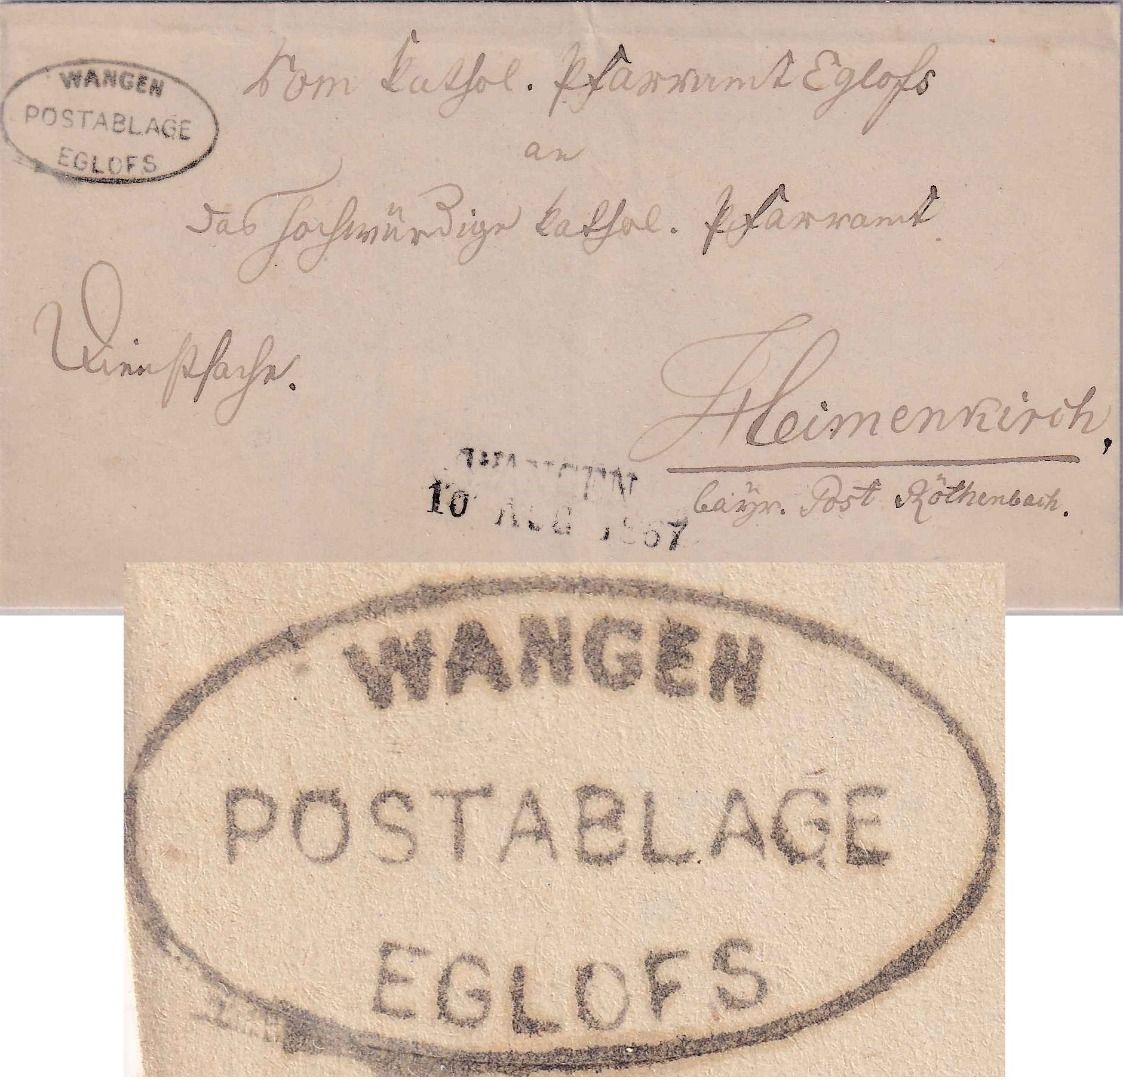 WANGEN
POSTABLAGE
EGLOFS
Vom kathol. Pfarramt Eglofs
an
das hochwürdige kathol. Pfarramt
Dienstsache.
Heimenkirch,
bayr. Post Röthenbach.
WANGEN
10 AUG 1867
WANGEN
POSTABLAGE
EGLOFS